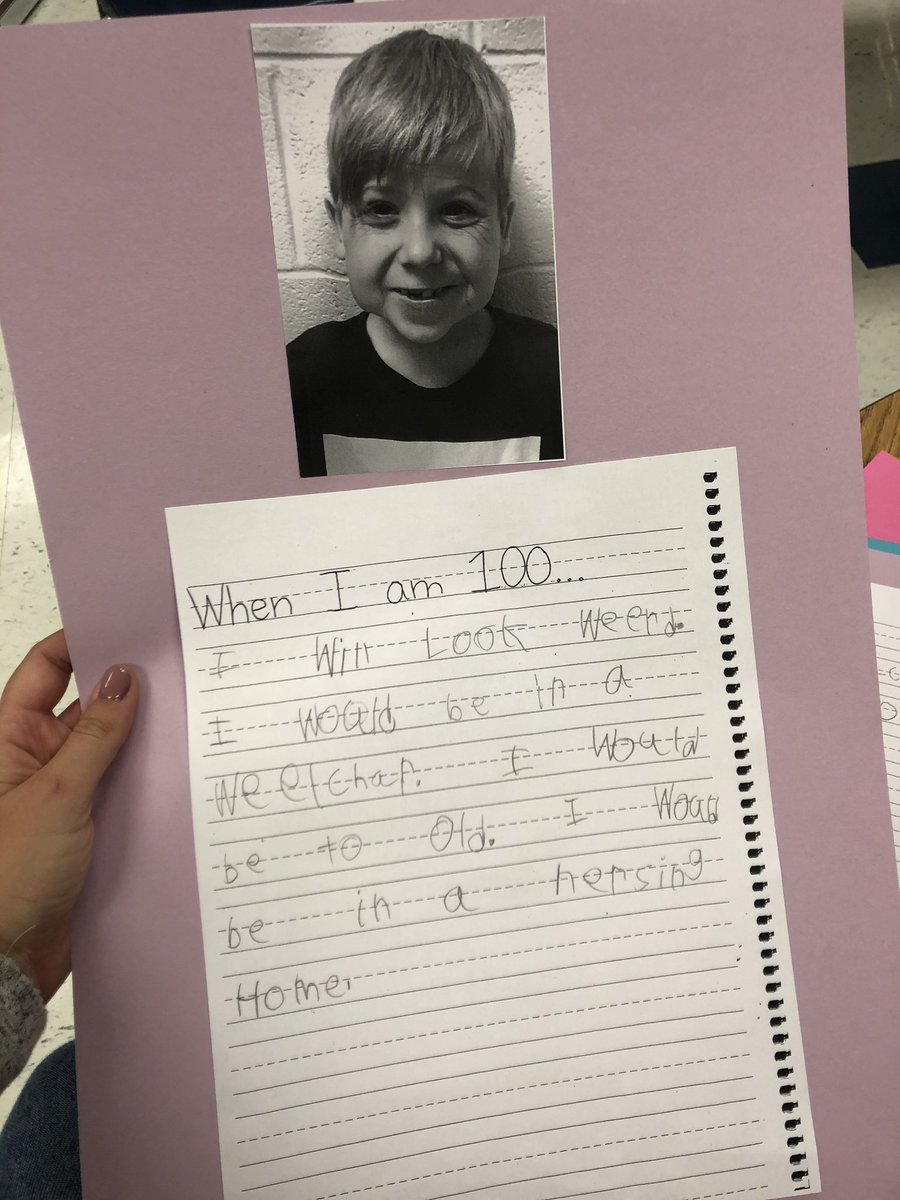 When I am 100...
I Will Look Weerd.
I Would be in a
Weelchar. I Would
be to Old. I Woud
be in a nersing
Home.